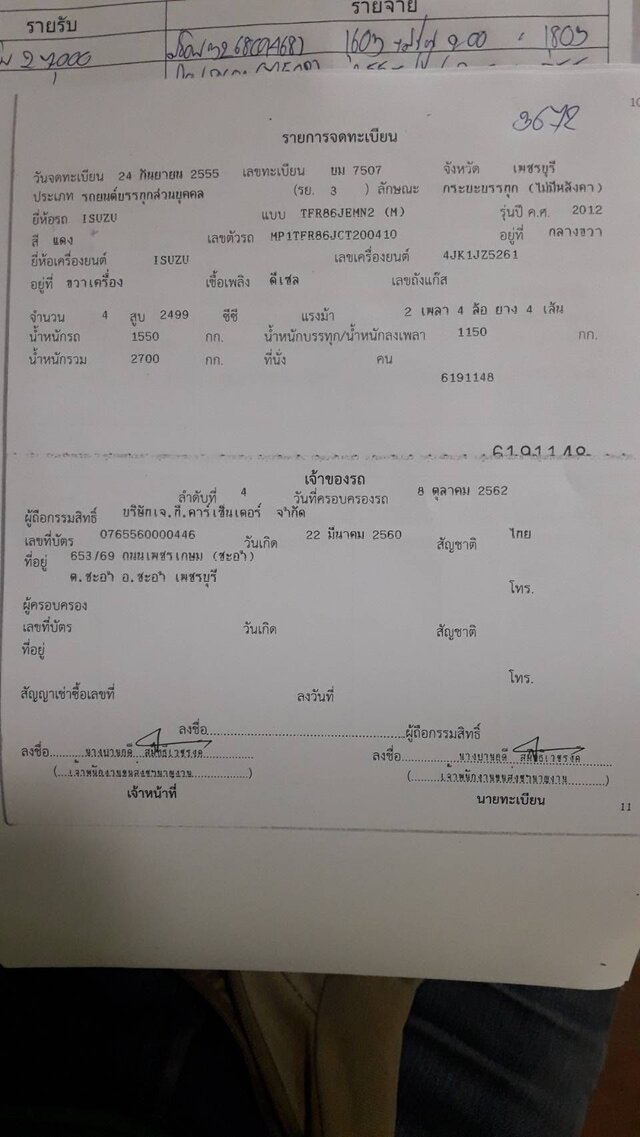 รายรับ รายจ่าย
27,000 1603 200 = 1803
3672
รายการจดทะเบียน
วันจดทะเบียน 24 กันยายน 2555 เลขทะเบียน บม 7507 จังหวัด เพชรบุรี
ประเภท รถยนต์บรรทุกส่วนบุคคล (รย. 3 ) ลักษณะ กระบะบรรทุก (ไม่มีหลังคา)
ยี่ห้อรถ ISUZU แบบ TFR86JEMN2 (M) รุ่นปี ค.ศ. 2012
สี แดง เลขตัวรถ MP1TFR86JCT200410 อยู่ที่ กลางขวา
ยี่ห้อเครื่องยนต์ ISUZU เลขเครื่องยนต์ 4JK1JZ5261
อยู่ที่ ขวาเครื่อง เชื้อเพลิง ดีเซล เลขถังแก๊ส
จำนวน 4 สูบ 2499 ซีซี แรงม้า 2 เพลา 4 ล้อ ยาง 4 เส้น
น้ำหนักรถ 1550 กก. น้ำหนักบรรทุก/น้ำหนักลงเพลา 1150 กก.
น้ำหนักรวม 2700 กก. ที่นั่ง คน
6191148
6191148
เจ้าของรถ
ลำดับที่ 4 วันที่ครอบครองรถ 8 ตุลาคม 2562
ผู้ถือกรรมสิทธิ์ บริษัทเจ.ที.คาร์เซ็นเตอร์ จำกัด
เลขที่บัตร 0765560000446 วันเกิด 22 มีนาคม 2560 สัญชาติ ไทย
ที่อยู่ 653/69 ถนนเพชรเกษม (ชะอำ)
ต.ชะอำ อ.ชะอำ เพชรบุรี
โทร.
ผู้ครอบครอง
เลขที่บัตร วันเกิด สัญชาติ
ที่อยู่
โทร.
สัญญาเช่าซื้อเลขที่ ลงวันที่
ลงชื่อ ผู้ถือกรรมสิทธิ์
ลงชื่อ ลงชื่อ
(เจ้าพนักงานขนส่งชำนาญงาน) (เจ้าพนักงานขนส่งชำนาญงาน)
เจ้าหน้าที่ นายทะเบียน
11